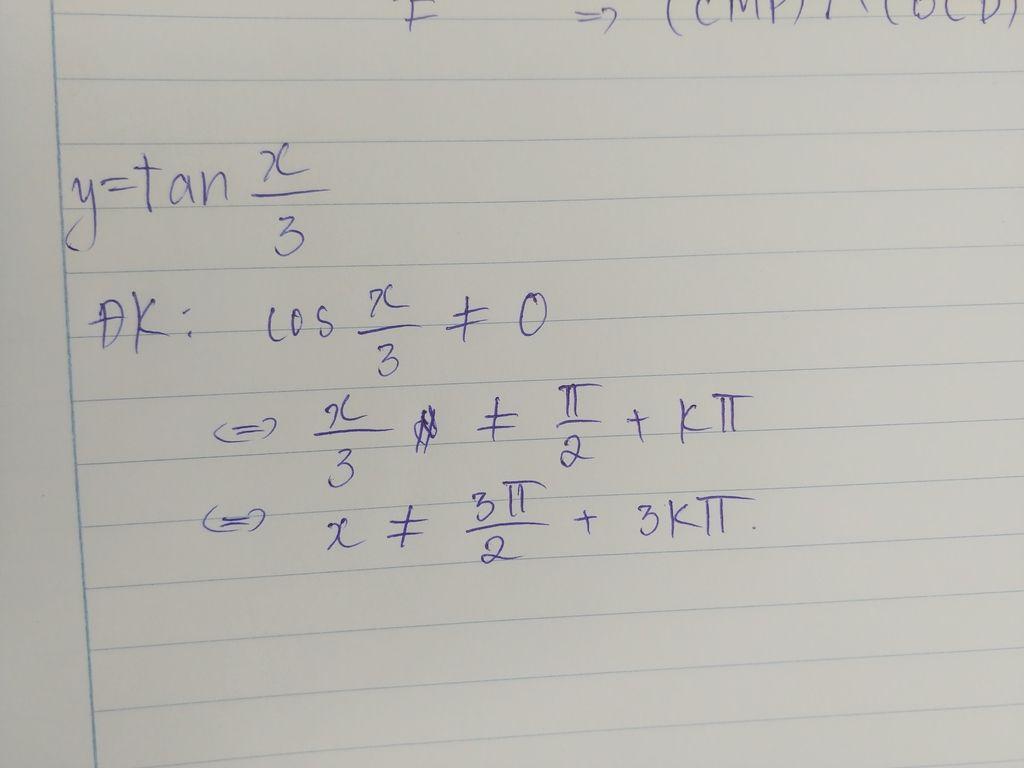 ⇒ (CMP) ∩ (OCD)
y = tan x/3
ĐK: cos x/3 ≠ 0
⇔ x/3 ≠ π/2 + kπ
⇔ x ≠ 3π/2 + 3kπ.